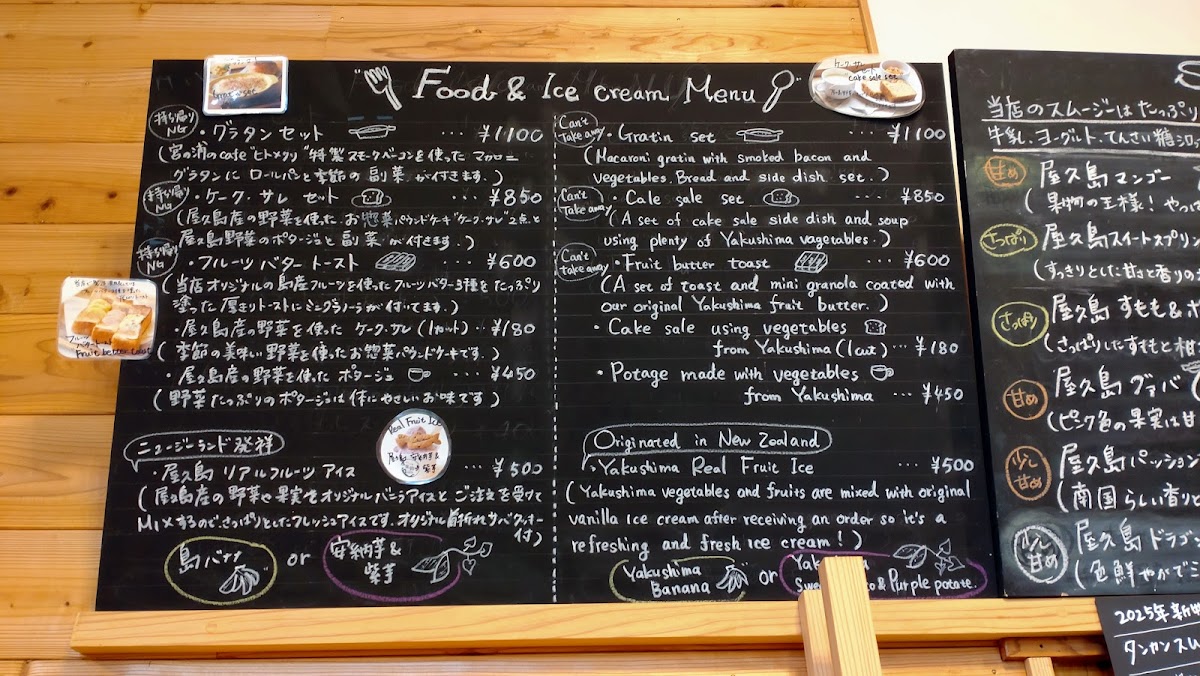 "Food & Ice cream Menu"
持ち帰りNG
・グラタン セット ... ¥1100
(宮の浦のcafe"ヒトメクリ"特製スモークベーコンを使ったマカロニ
グラタンに ロールパンと季節の副菜が付きます.)
持ち帰りNG
・ケーク・サレ セット ... ¥850
(屋久島産の野菜を使ったお惣菜パウンドケーキ"ケーク・サレ"2点と
屋久島野菜のポタージュと副菜が付きます.)
持ち帰りNG
・フルーツバタートースト ... ¥600
(当店オリジナルの島産フルーツを使ったフルーツバター3種をたっぷり
塗った厚きりトーストにミニグラノーラが付いてます.)
・屋久島産の野菜を使った ケーク・サレ(1カット)... ¥180
(季節の美味しい野菜を使ったお惣菜パウンドケーキです.)
・屋久島産の野菜を使った ポタージュ ... ¥450
(野菜たっぷりのポタージュは体にやさしいお味です)
ニュージーランド発祥
・屋久島 リアルフルーツ アイス ... ¥500
(屋久島産の野菜や果実をオリジナルバニラアイスと ご注文を受けて
MIXするので、さっぱりとしたフレッシュアイスです.オリジナル サバクッキー
付)
島バナナ or 安納芋&
紫芋
Can't
Take away
・Gratin set ... ¥1100
(Macaroni gratin with smoked bacon and
vegetables. Bread and side dish set.)
Can't
Take away
・Cale sale set ... ¥850
(A set of cake sale side dish and soup
using plenty of Yakushima vagetables.)
Can't
take away
・Fruit butter toast ... ¥600
(A set of toast and mini granola coated with
our original Yakushima fruit butter.)
・Cake sale using vegetables
from Yakushima (1cut)... ¥180
・Potage made with vegetables
from Yakushima ... ¥450
Originated in New Zealand
・Yakushima Real Fruit Ice ... ¥500
(Yakushima vegetables and fruits are mixed with original
vanilla Ice cream after receiving an order so it's a
refreshing and fresh ice cream!)
Yakushima
Banana
or
& Purple potate.
ケーク・サレ
cake sale set
Real Fruit Ice
Fruit better toast
当店のスムージーはたっぷり
牛乳、ヨーグルト、てんさい糖シロッ
甘め
屋久島マンゴー
(果物の王様!
さっぱり
屋久島スイートスプリン
(すっきりとした甘さと香りの
さっぱり
屋久島 すもも&
(さっぱりしたすももと柑
甘め
屋久島 グァバ
(ピンク色の果実は甘
少し
甘め
屋久島 パッション
(南国らしい香りと
少し
甘め
屋久島 ドラゴン
(色鮮やかで
2025年新
タンカンスム